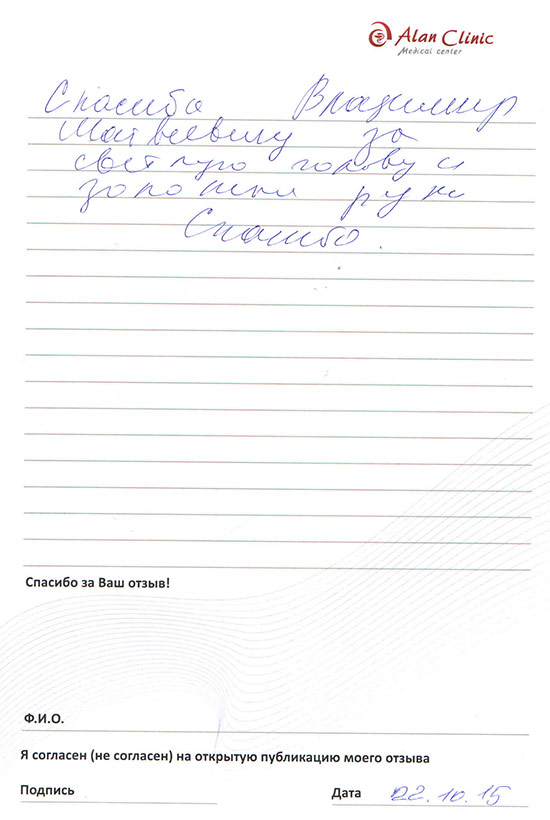 Alan Clinic
Medical center
Спасибо Владимир
Матвеевичу за
светлую голову и
золотые руки
Спасибо.
Спасибо за Ваш отзыв!
Ф.И.О.
Я согласен (не согласен) на открытую публикацию моего отзыва
Подпись
Дата 22.10.15